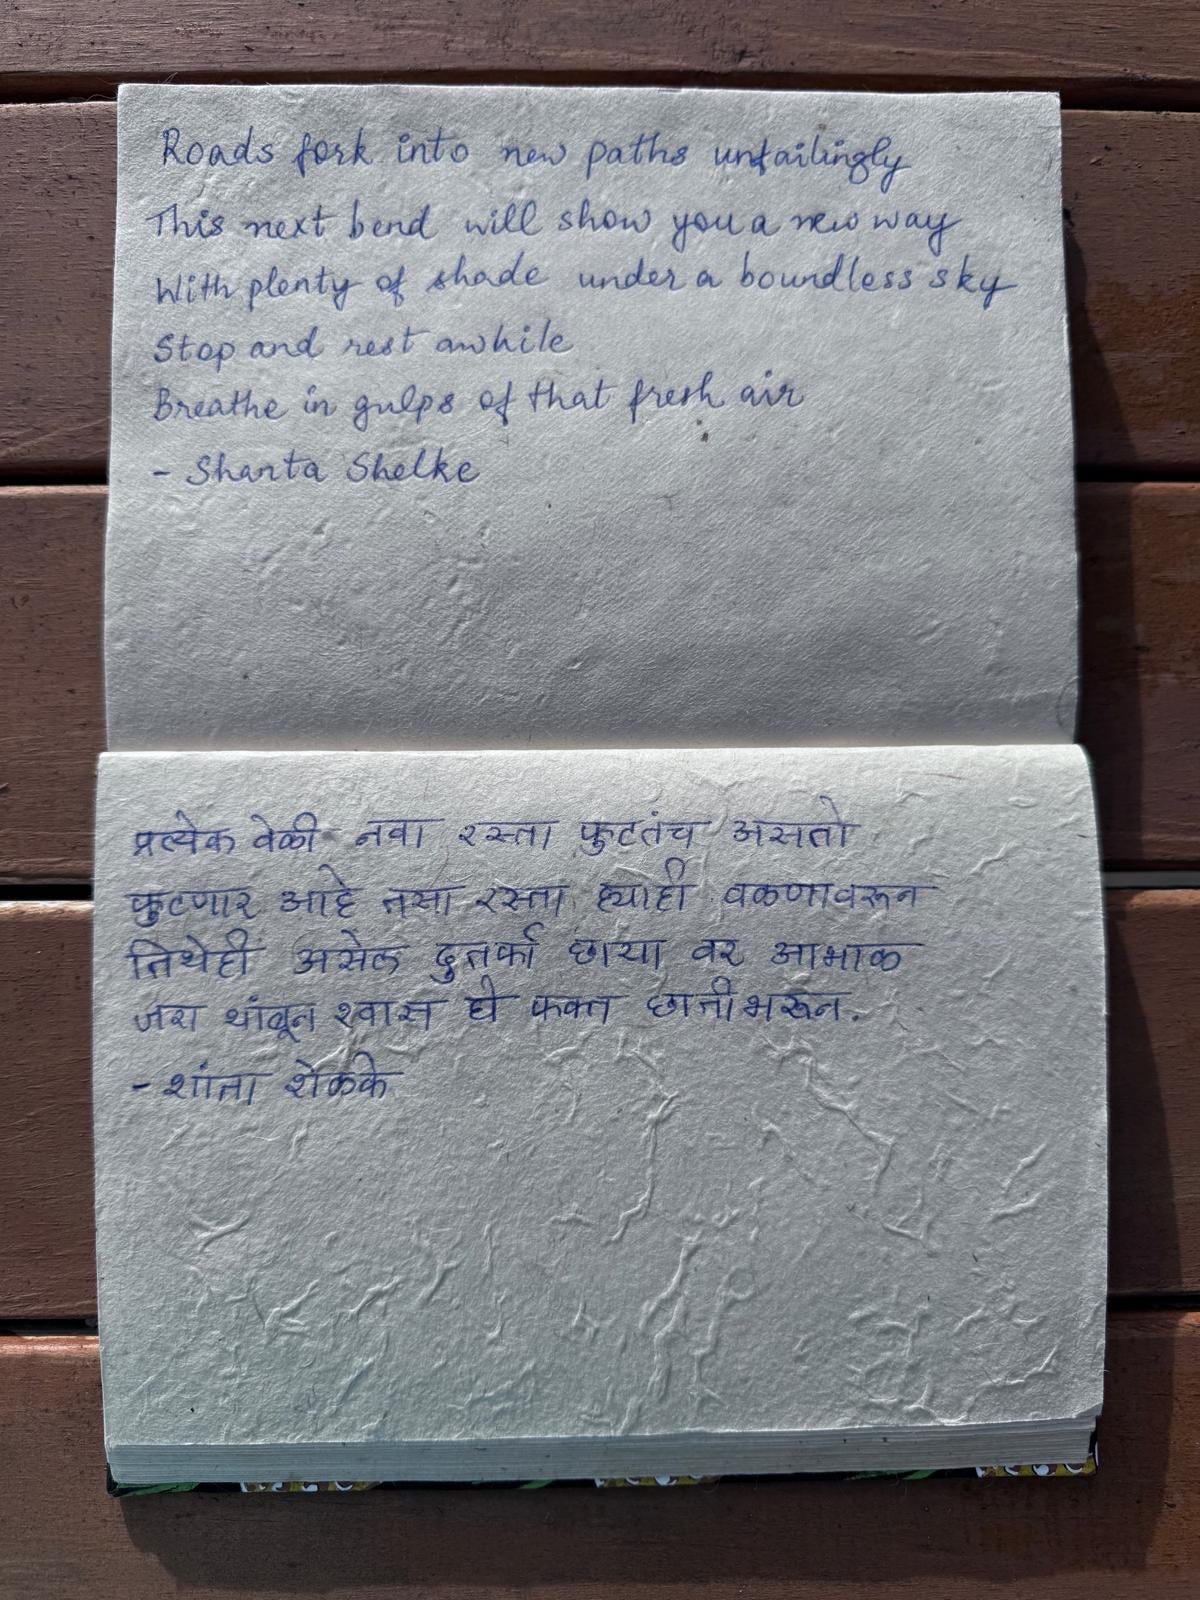 Roads fork into new paths unfailingly
This next bend will show you a new way
With plenty of shade under a boundless sky
Stop and rest awhile
Breathe in gulps of that fresh air
- Shanta Shelke
प्रत्येक वेळी नवा रस्ता फुटतंच असतो
फुटणार आहे तसा रस्ता ह्याही वळणावरून
तिथेही असेल दुतर्फा छाया वर आभाळ
जरा थांबून श्वास घे फक्त छातीभरून.
- शांता शेळके